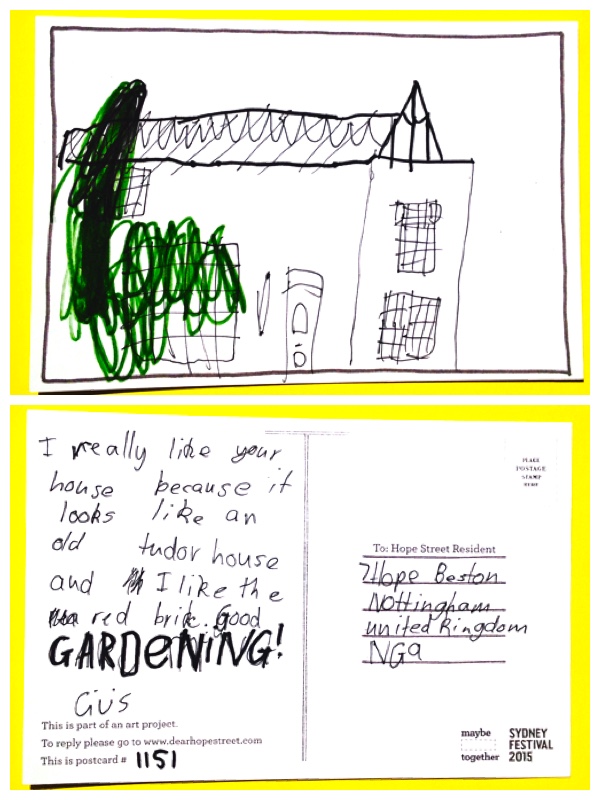 I really like your
house because it
looks like an
old tudor house
and I like the
red brick. Good
GARDENING!
Gus
This is part of an art project.
To reply please go to www.dearhopestreet.com
This is postcard # 1151
PLACE
POSTAGE
STAMP
HERE
To: Hope Street Resident
7 Hope Beston
Nottingham
united Kingdom
NG9
maybe
together
SYDNEY
FESTIVAL
2015